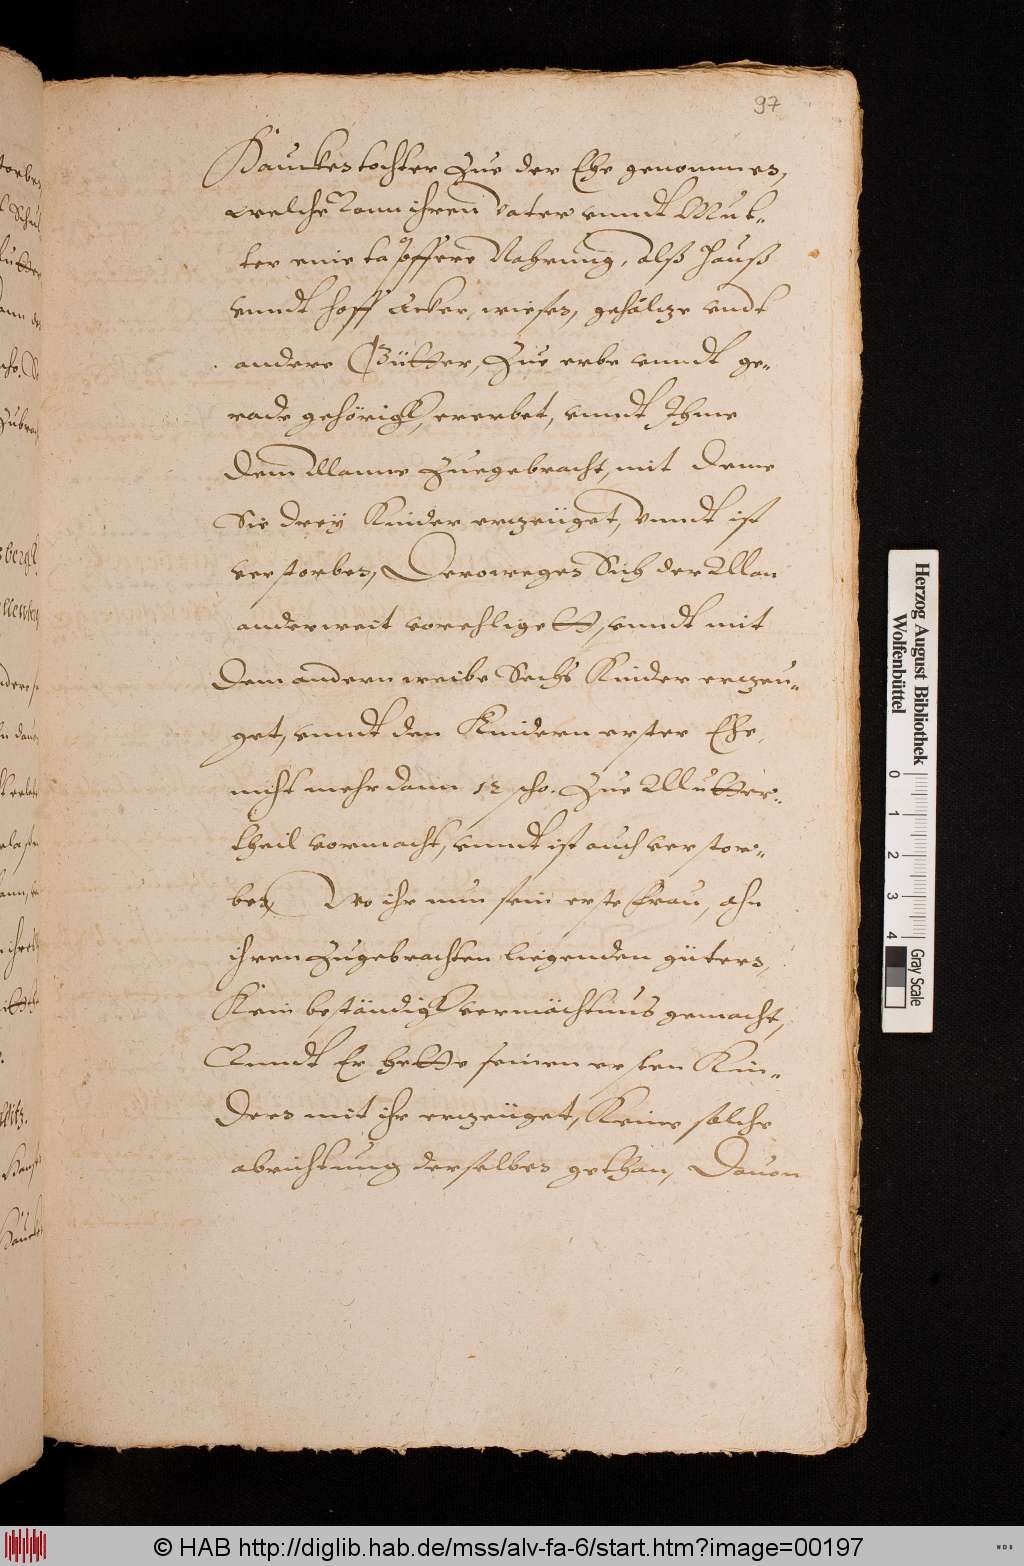 97
Hauckes tochter Zue der Ehe genommen,
welche vonn ihren Vater vnndt Mut-
ter eine tapffere Nahrung, alß Hauß
vnndt hoff Acker, wiesen, gehöltze vndt
andere Gütter, Zue erbe vnndt ge-
rade gehörigk, ererbet, vnndt Ihme
dem Manne Zuegebracht, mit deme
Sie drey Kinder erzeüget, vnndt ist
verstorben, Deroweges Sich der Man
anderweit vorehligett, vnndt mit
dem andern weibe Sechs Kinder erzeu-
get, vnndt den Kindern erster Ehe,
nicht mehr dann 12 scho. Zue Mutter-
theil vormacht, vnndt ist auch verstor-
ben, Wo ihr nun sein erste Frau, ahn
ihren Zugebrachten liegenden gütern,
Kein beständigk vermächtnus gemacht,
Vnndt Er hette seinen ersten Kin-
dern mit ihr erzeüget, Keine solche
abrichtung derselben gethan, Dauon
Herzog August Bibliothek
Wolfenbüttel
0 1 2 3 4
Gray Scale
© HAB http://diglib.hab.de/mss/alv-fa-6/start.htm?image=00197